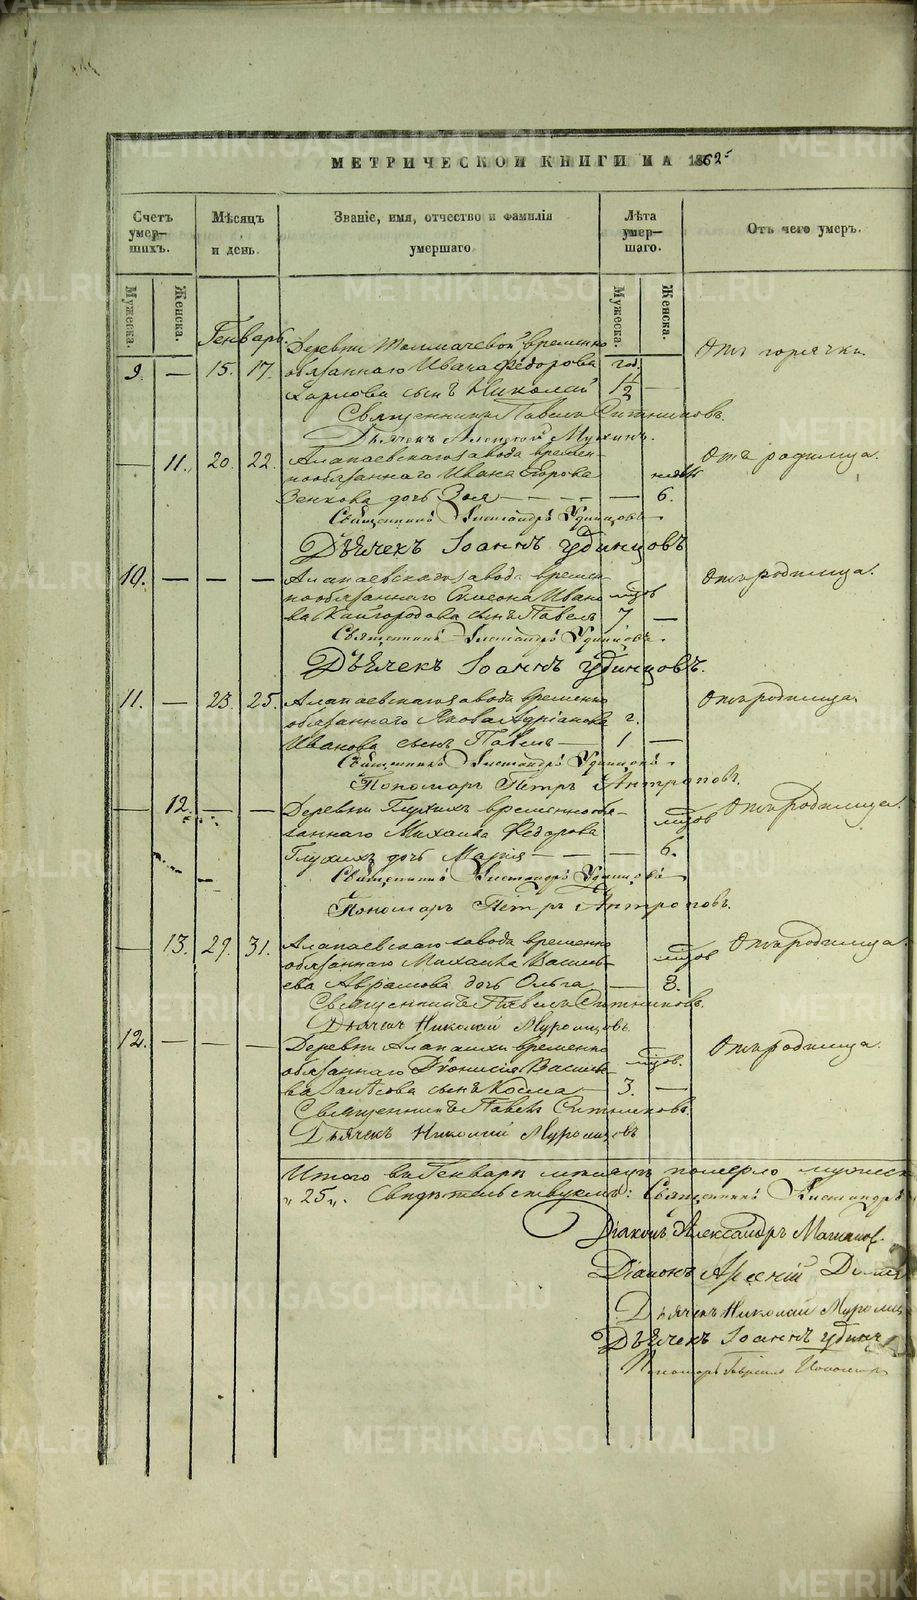 МЕТРИЧЕСКОЙ КНИГИ НА 1862
Счетъ умер-шихъ.
Мѣсяцъ и день.
Званіе, имя, отчество и фамилія умершаго.
Лѣта умер-шаго.
Отъ чего умеръ.
Мужеска.
Женска.
Мужеска.
Женска.
Генварь.
Деревни Толмачевой временно
9. — 15. 17. обязаннаго Ивана Федорова год.
Карпова сынъ Николай 1 1/2 —
Отъ горячки.
Священникъ Павелъ Ситниковъ.
Дьячекъ Алексей Мухинъ.
— 11. 20. 22. Алапаевскаго завода времен-
нообязаннаго Ивана Егорова
Зенкова дочь Зоя — — — — 6.
Отъ родимца.
Священникъ Александръ Удинцовъ
Дьячекъ Іоаннъ Удинцовъ
10. — — — Алапаевскаго завода времен-
нообязаннаго Симеона Ивано мцов
ва Кайгородова сынъ Павелъ 7. —
Отъ родимца.
Священникъ Александръ Удинцовъ.
Дьячекъ Іоаннъ Удинцовъ.
11. — 23. 25. Алапаевскаго завода временно
обязаннаго Якова Адріанова г.
Иванова сынъ Павелъ — 1 —
Отъ родимца.
Священникъ Александръ Удинцовъ
Пономарь Петръ Антроповъ.
— 12. — — Деревни Глухихъ временнообя-
заннаго Михаила Федорова мцов
Глухихъ дочь Марія — — — 6.
Отъ родимца.
Священникъ Александръ Удинцовъ
Пономарь Петръ Антроповъ.
— 13. 29. 31. Алапаевскаго завода временно
обязаннаго Михаила Василь- мцов
ева Абрамова дочь Ольга — 8.
Отъ родимца.
Священникъ Павелъ Ситниковъ.
Дьячекъ Николай Муромцовъ
12. — — — Деревни Алапаихи временно
обязаннаго Діонисія Василье- мцов.
ва сынъ Косма — 3. —
Отъ родимца.
Священникъ Павелъ Ситниковъ.
Дьячекъ Николай Муромцовъ
Итого въ Генварѣ мѣсяцѣ померло мужеск
„25„. Свидѣтельствуемъ: Священникъ Александръ
Діаконъ Александръ
Діаконъ Арсеній
Дьячекъ Николай Муромц
Дьячекъ Іоаннъ Удинц
Пономарь
METRIKI.GASO-URAL.RU